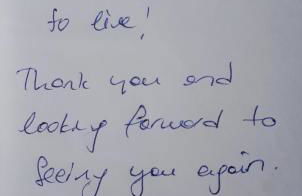 to live!
Thank you and
looking forward to
seeing you again.